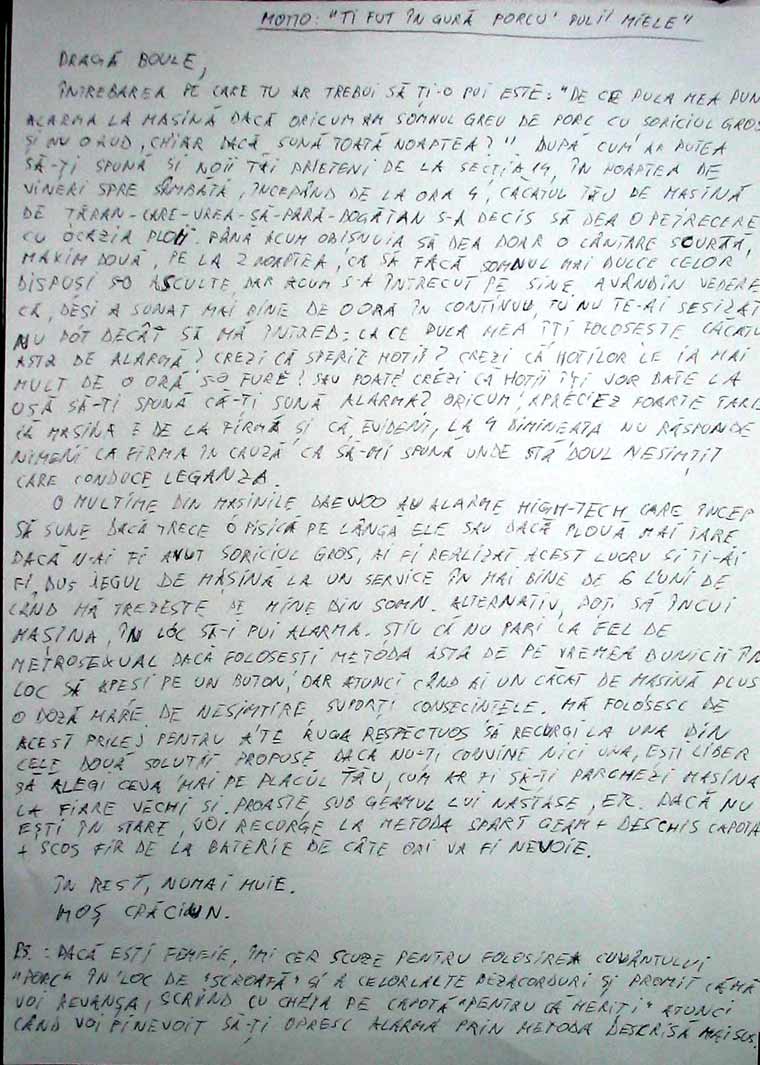 MOTTO: "TI FUT ÎN GURĂ PORCU' PULII MIELE"
DRAGĂ BOULE,
ÎNTREBAREA PE CARE TU AR TREBUI SĂ ȚI-O PUI ESTE: "DE CE PULA MEA PUN
ALARMA LA MAȘINĂ DACĂ ORICUM AM SOMNUL GREU DE PORC CU ȘORICIUL GROS
ȘI NU O AUD, CHIAR DACĂ SUNĂ TOATĂ NOAPTEA?". DUPĂ CUM AR PUTEA
SĂ-ȚI SPUNĂ ȘI NOII TĂI PRIETENI DE LA SECȚIA 14, ÎN NOAPTEA DE
VINERI SPRE SÂMBĂTĂ, ÎNCEPÂND DE LA ORA 4, CĂCATUL TĂU DE MAȘINĂ
DE ȚĂRAN-CARE-VREA-SĂ-PARĂ-BOGĂTAN S-A DECIS SĂ DEA O PETRECERE
CU OCAZIA PLOII. PÂNĂ ACUM OBIȘNUIA SĂ DEA DOAR O CÂNTARE SCURTĂ,
MAXIM DOUĂ, PE LA 2 NOAPTEA, CA SĂ FACĂ SOMNUL MAI DULCE CELOR
DISPUȘI S-O ASCULTE, DAR ACUM S-A ÎNTRECUT PE SINE. AVÂND ÎN VEDERE
CĂ, DEȘI A SUNAT MAI BINE DE O ORĂ ÎN CONTINUU, TU NU TE-AI SESIZAT
NU POT DECÂT SĂ MĂ ÎNTREB: LA CE PULA MEA ÎȚI FOLOSEȘTE CĂCATU'
ĂSTA DE ALARMĂ? CREZI CĂ SPERII HOȚII? CREZI CĂ HOȚILOR LE IA MAI
MULT DE O ORĂ S-O FURE? SAU POATE CREZI CĂ HOȚII ÎȚI VOR BATE LA
UȘĂ SĂ-ȚI SPUNĂ CĂ-ȚI SUNĂ ALARMA? ORICUM, APRECIEZ FOARTE TARE
CĂ MAȘINA E DE LA FIRMĂ ȘI CĂ, EVIDENT, LA 4 DIMINEAȚA NU RĂSPUNDE
NIMENI LA FIRMA ÎN CAUZĂ CA SĂ-MI SPUNĂ UNDE STĂ BOUL NESIMȚIT
CARE CONDUCE LEGANZA.
O MULȚIME DIN MAȘINILE DAEWOO AU ALARME HIGH-TECH CARE ÎNCEP
SĂ SUNE DACĂ TRECE O PISICĂ PE LÂNGĂ ELE SAU DACĂ PLOUĂ MAI TARE
DACĂ N-AI FI AVUT ȘORICIUL GROS, AI FI REALIZAT ACEST LUCRU ȘI ȚI-AI
FI DUS JEGUL DE MAȘINĂ LA UN SERVICE ÎN MAI BINE DE 6 LUNI DE
CÂND MĂ TREZEȘTE PE MINE DIN SOMN. ALTERNATIV, POȚI SĂ ÎNCUI
MAȘINA, ÎN LOC SĂ-I PUI ALARMA. ȘTIU CĂ NU PARI LA FEL DE
METROSEXUAL DACĂ FOLOSEȘTI METODA ASTA DE PE VREMEA BUNICII ÎN
LOC SĂ APEȘI PE UN BUTON, DAR ATUNCI CÂND AI UN CĂCAT DE MAȘINĂ PLUS
O DOZĂ MARE DE NESIMȚIRE SUPORȚI CONSECINȚELE. MĂ FOLOSESC DE
ACEST PRILEJ PENTRU A TE RUGA RESPECTUOS SĂ RECURGI LA UNA DIN
CELE DOUĂ SOLUȚII PROPUSE. DACĂ NU-ȚI CONVINE NICI UNA, EȘTI LIBER
SĂ ALEGI CEVA MAI PE PLACUL TĂU, CUM AR FI SĂ-ȚI PARCHEZI MAȘINA
LA FIARE VECHI SAU PROASTE, SUB GEAMUL LUI NĂSTASE, ETC. DACĂ NU
EȘTI ÎN STARE, VOI RECURGE LA METODA SPART GEAM + DESCHIS CAPOTA
+ SCOS FIR DE LA BATERIE DE CÂTE ORI VA FI NEVOIE.
ÎN REST, NUMAI MUIE.
MOȘ CRĂCIUN.
P.S.: DACĂ EȘTI FEMEIE, ÎMI CER SCUZE PENTRU FOLOSIREA CUVÂNTULUI
"PORC" ÎN LOC DE "SCROAFĂ" ȘI A CELORLALTE DEZACORDURI ȘI PROMIT CĂ MĂ
VOI REVANȘA, SCRIIND CU CHEIA PE CAPOTĂ "PENTRU CĂ MERIȚI" ATUNCI
CÂND VOI FI NEVOIT SĂ-ȚI OPRESC ALARMA PRIN METODA DESCRISĂ MAI SUS.